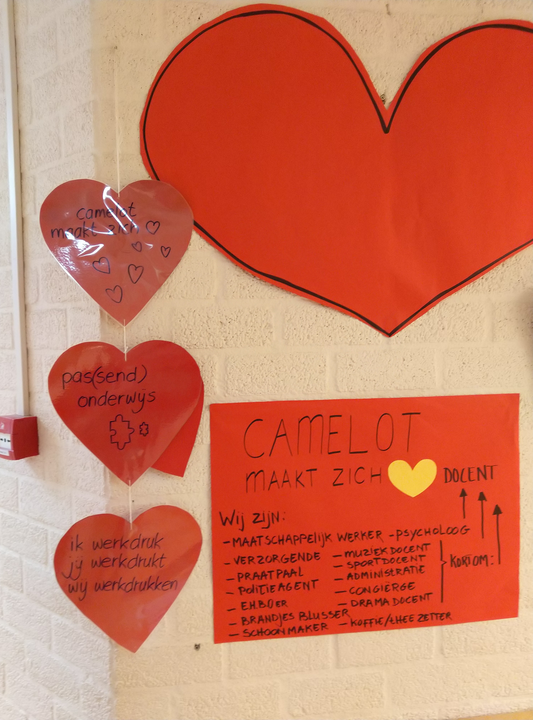 camelot
maakt zich
pas(send)
onderwijs
ik werkdruk
jij werkdrukt
wij werkdrukken
CAMELOT
MAAKT ZICH DOCENT
Wij zijn:
- MAATSCHAPPELIJK WERKER - PSYCHOLOOG
- VERZORGENDE
- PRAATPAAL
- POLITIEAGENT
- E.H.B.O'er
- BRANDJES BLUSSER
- SCHOONMAKER
- MUZIEKDOCENT
- SPORTDOCENT
- ADMINISTRATIE
- CONCIËRGE
- DRAMADOCENT
- KOFFIE/THEE ZETTER
KORTOM: